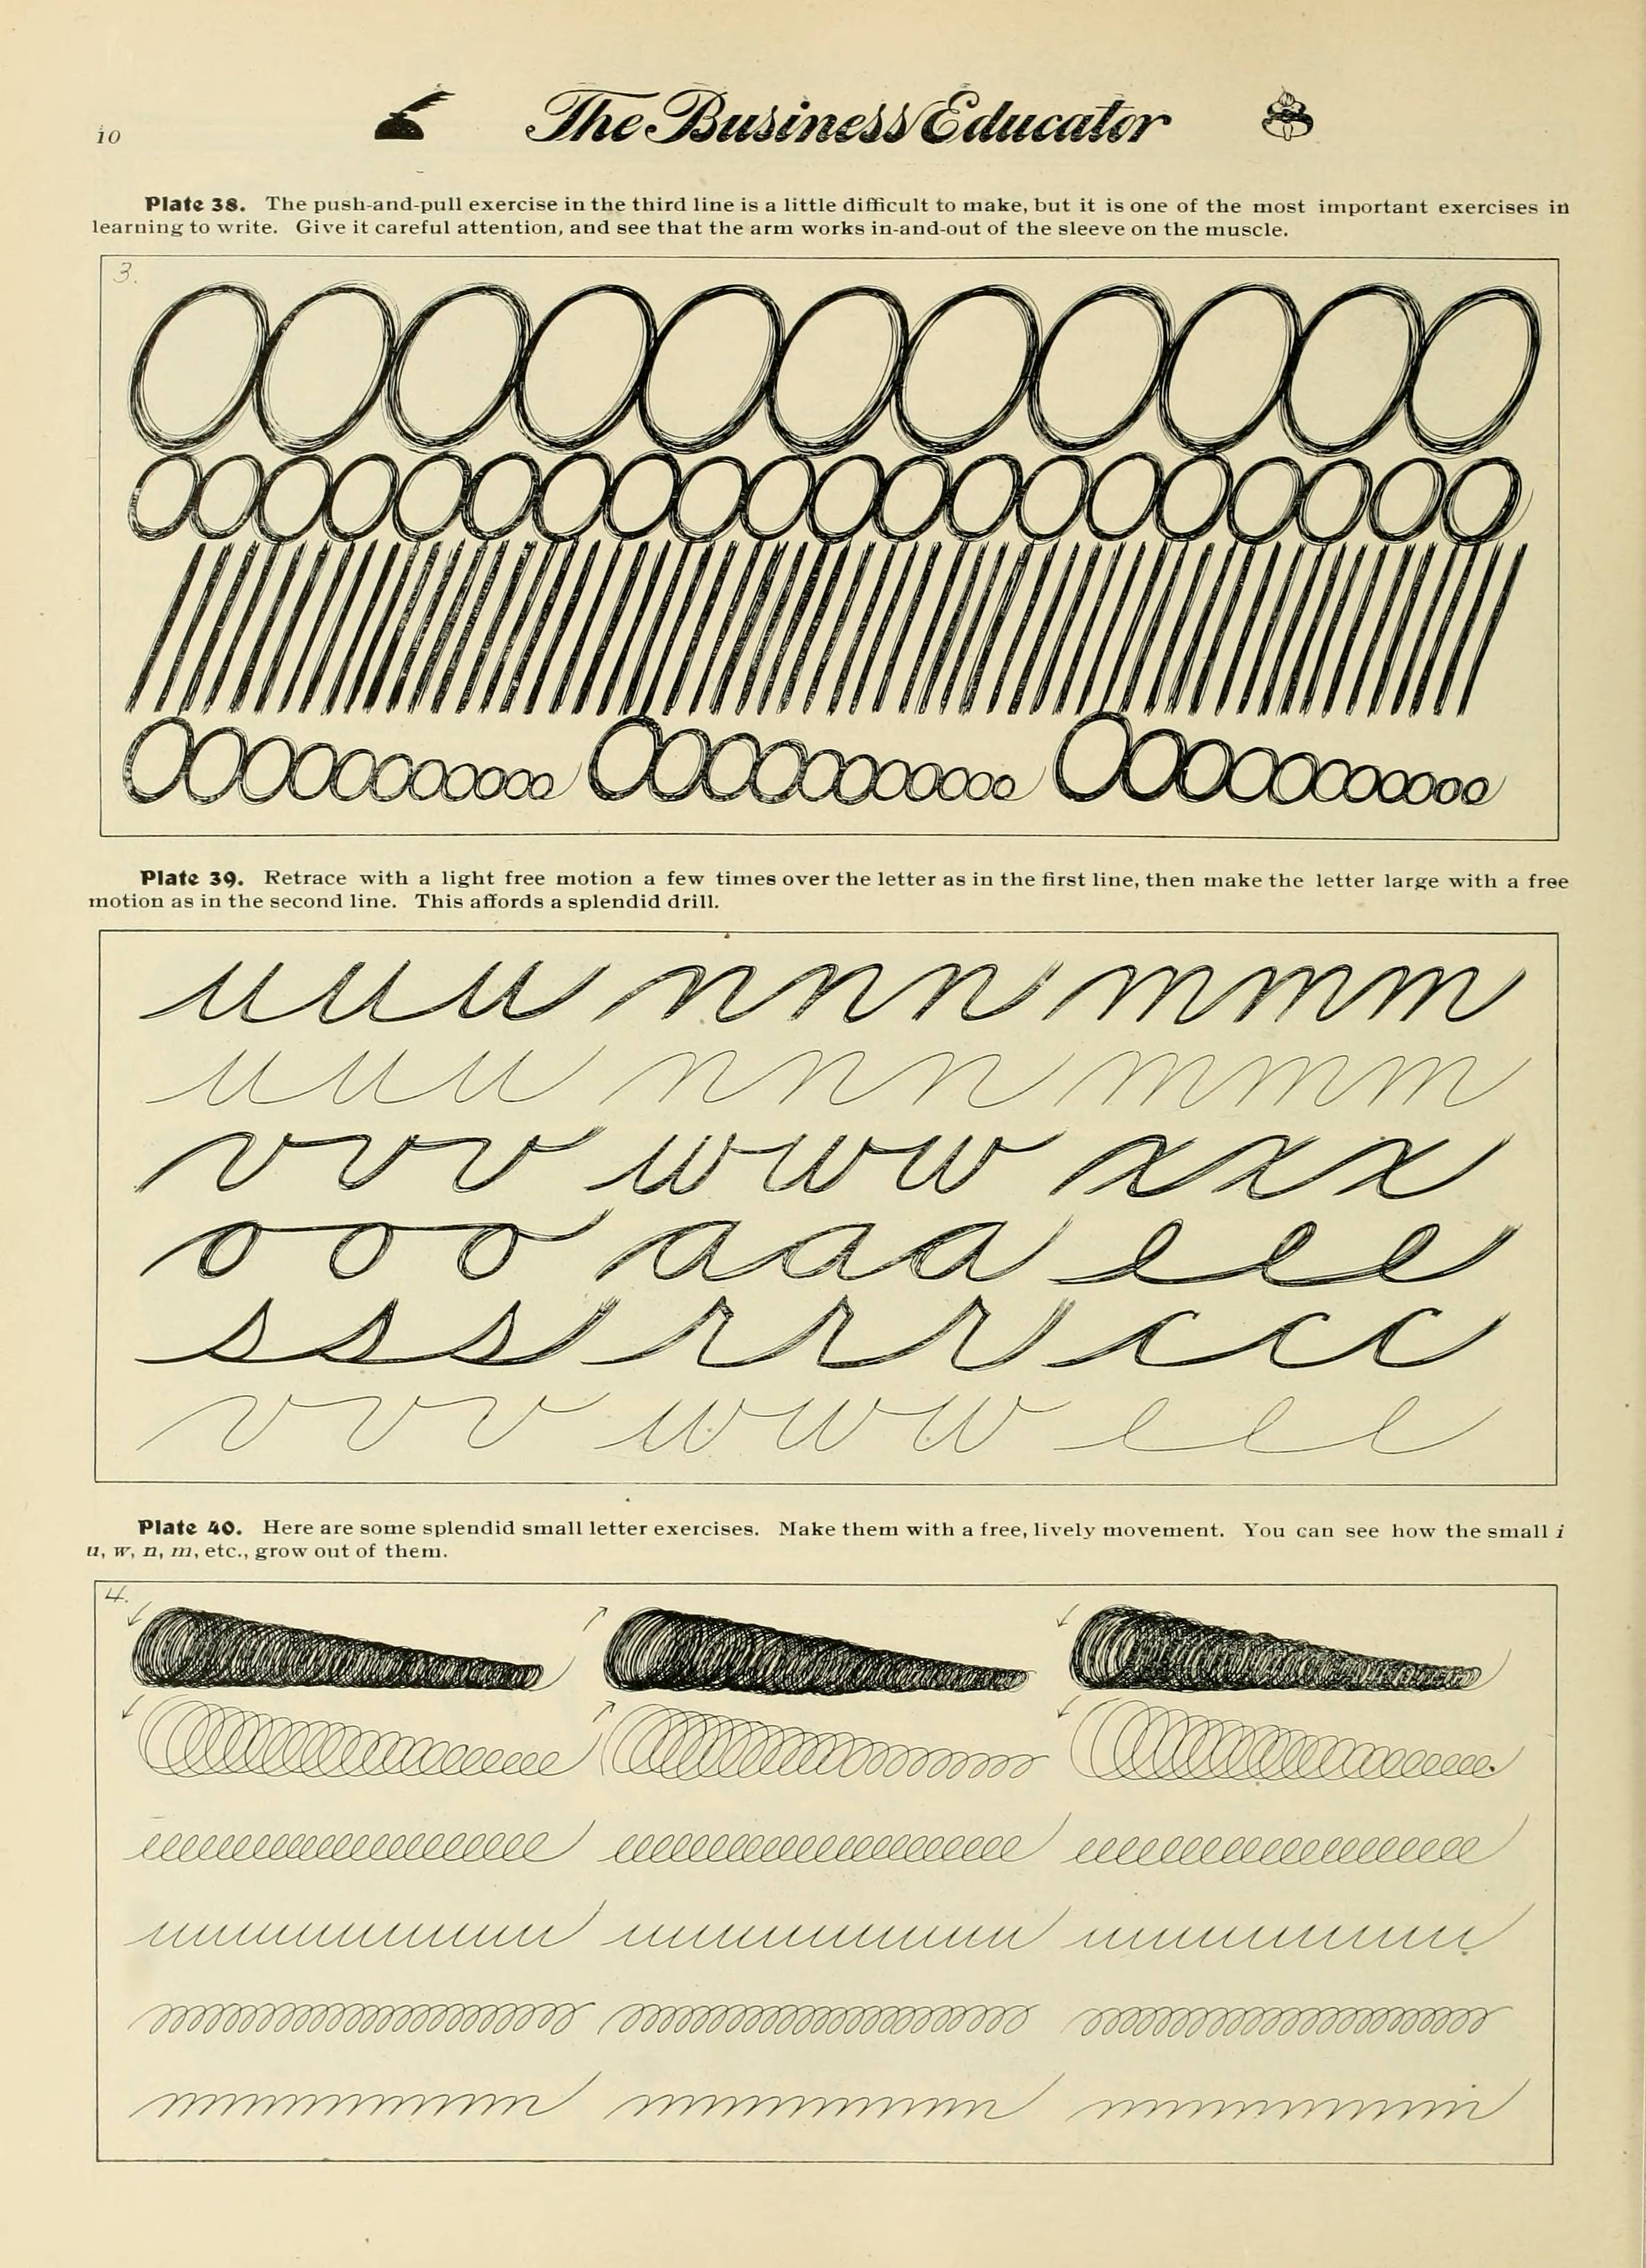 10
The Business Educator
Plate 38. The push-and-pull exercise in the third line is a little difficult to make, but it is one of the most important exercises in
learning to write. Give it careful attention, and see that the arm works in-and-out of the sleeve on the muscle.
3.
Plate 39. Retrace with a light free motion a few times over the letter as in the first line, then make the letter large with a free
motion as in the second line. This affords a splendid drill.
u u u n n n m m m
u u u n n n m m m
v v v w w w x x x
o o o a a a e e e
s s s r r r c c c
v v v w w w e e e
Plate 40. Here are some splendid small letter exercises. Make them with a free, lively movement. You can see how the small i
u, w, n, m, etc., grow out of them.
4.